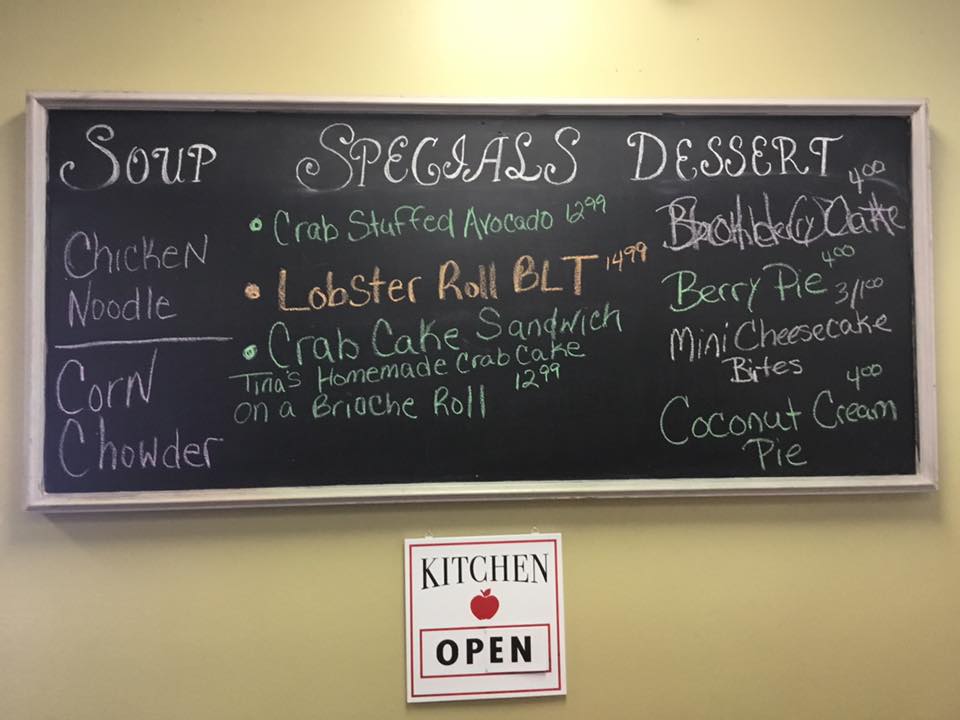 SOUP
Chicken
Noodle
Corn
Chowder
SPECIALS
• Crab Stuffed Avocado 1299
• Lobster Roll BLT 1499
• Crab Cake Sandwich
Tina's Homemade Crab Cake
on a Brioche Roll 1299
DESSERT
4.00
Berry Pie 4.00
3/1.00
Mini Cheesecake
Bites
4.00
Coconut Cream
Pie
KITCHEN
OPEN